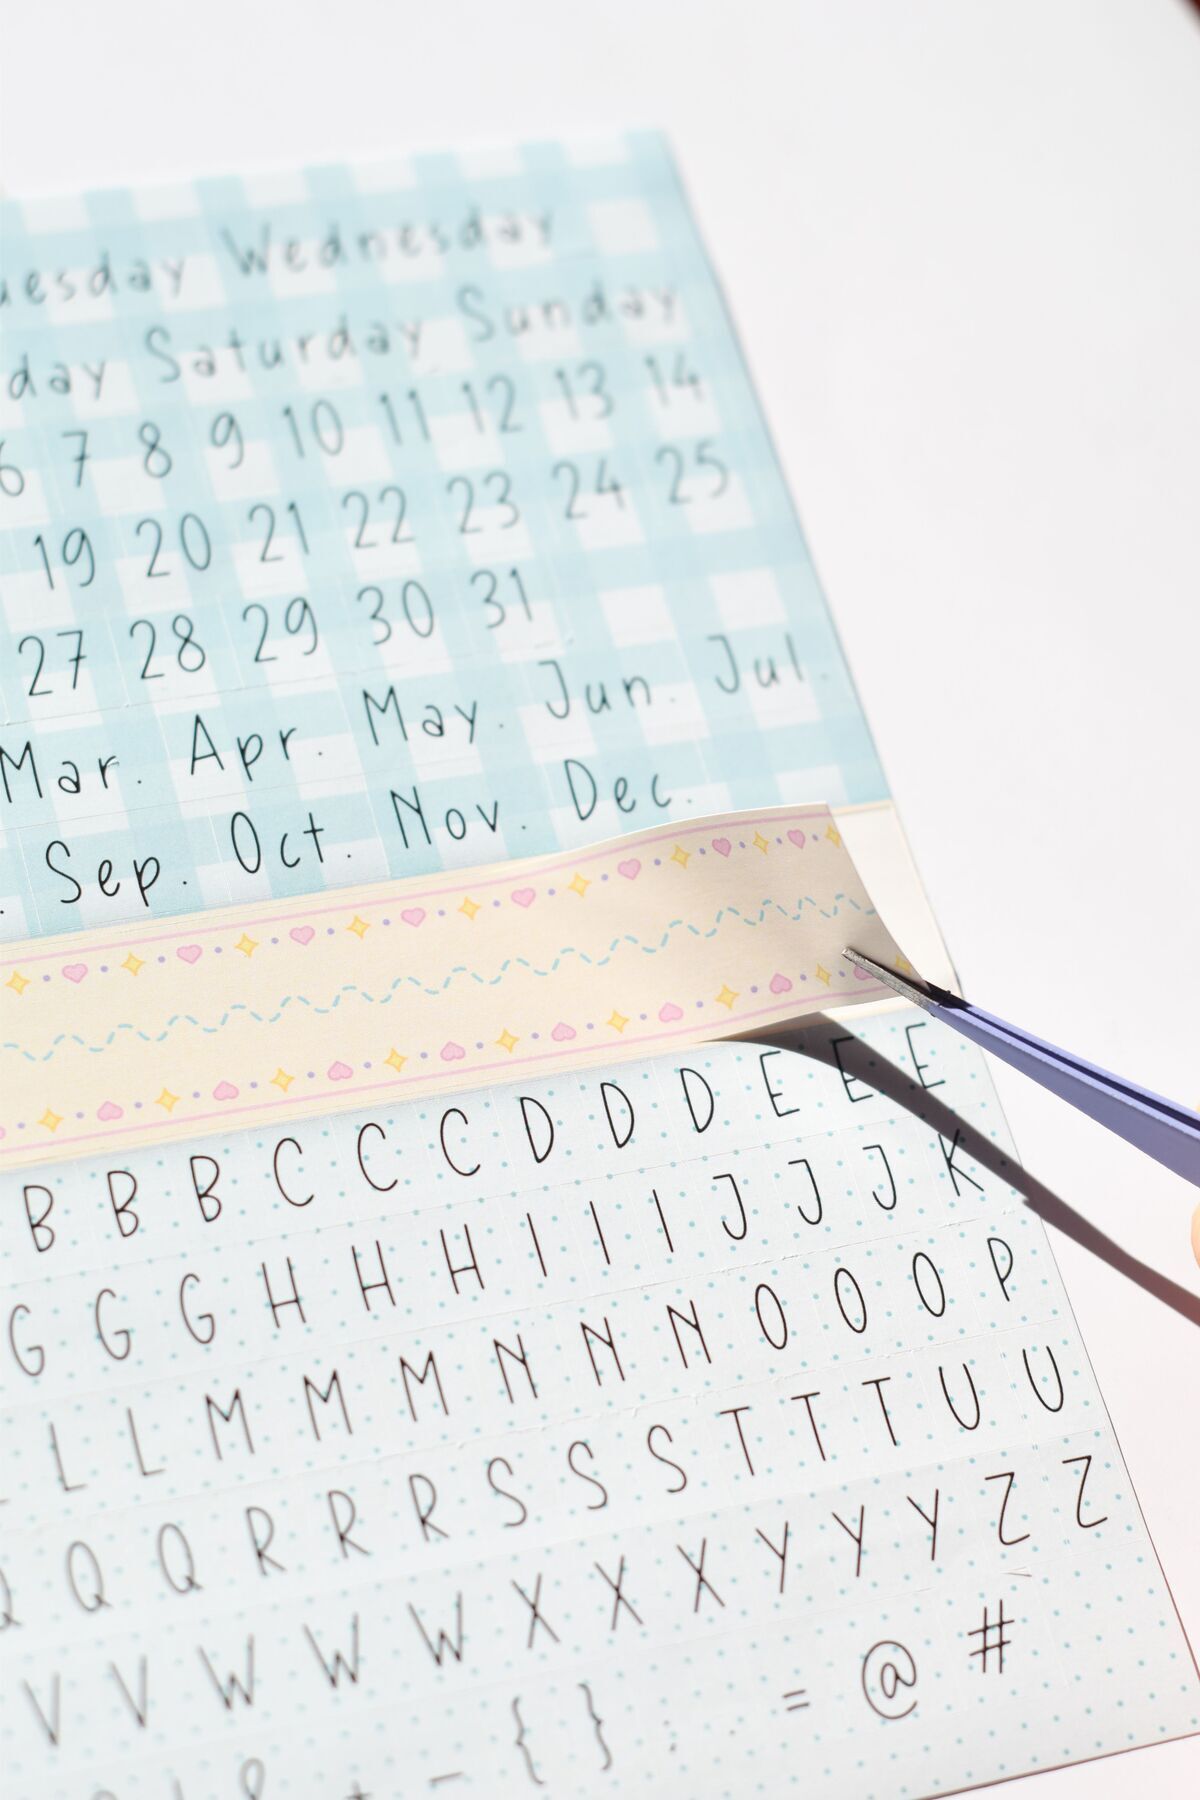 Wednesday
Saturday Sunday
7 8 9 10 11 12 13 14
19 20 21 22 23 24 25
27 28 29 30 31
Mar. Apr. May. Jun. Jul.
Sep. Oct. Nov. Dec.
B B B C C C D D D E E E
G G G H H H I I I J J J K
L L M M M N N N O O O P
Q Q R R R S S S T T T U U
V V W W W X X X Y Y Y Z Z
{ } : . = @ #
& + -